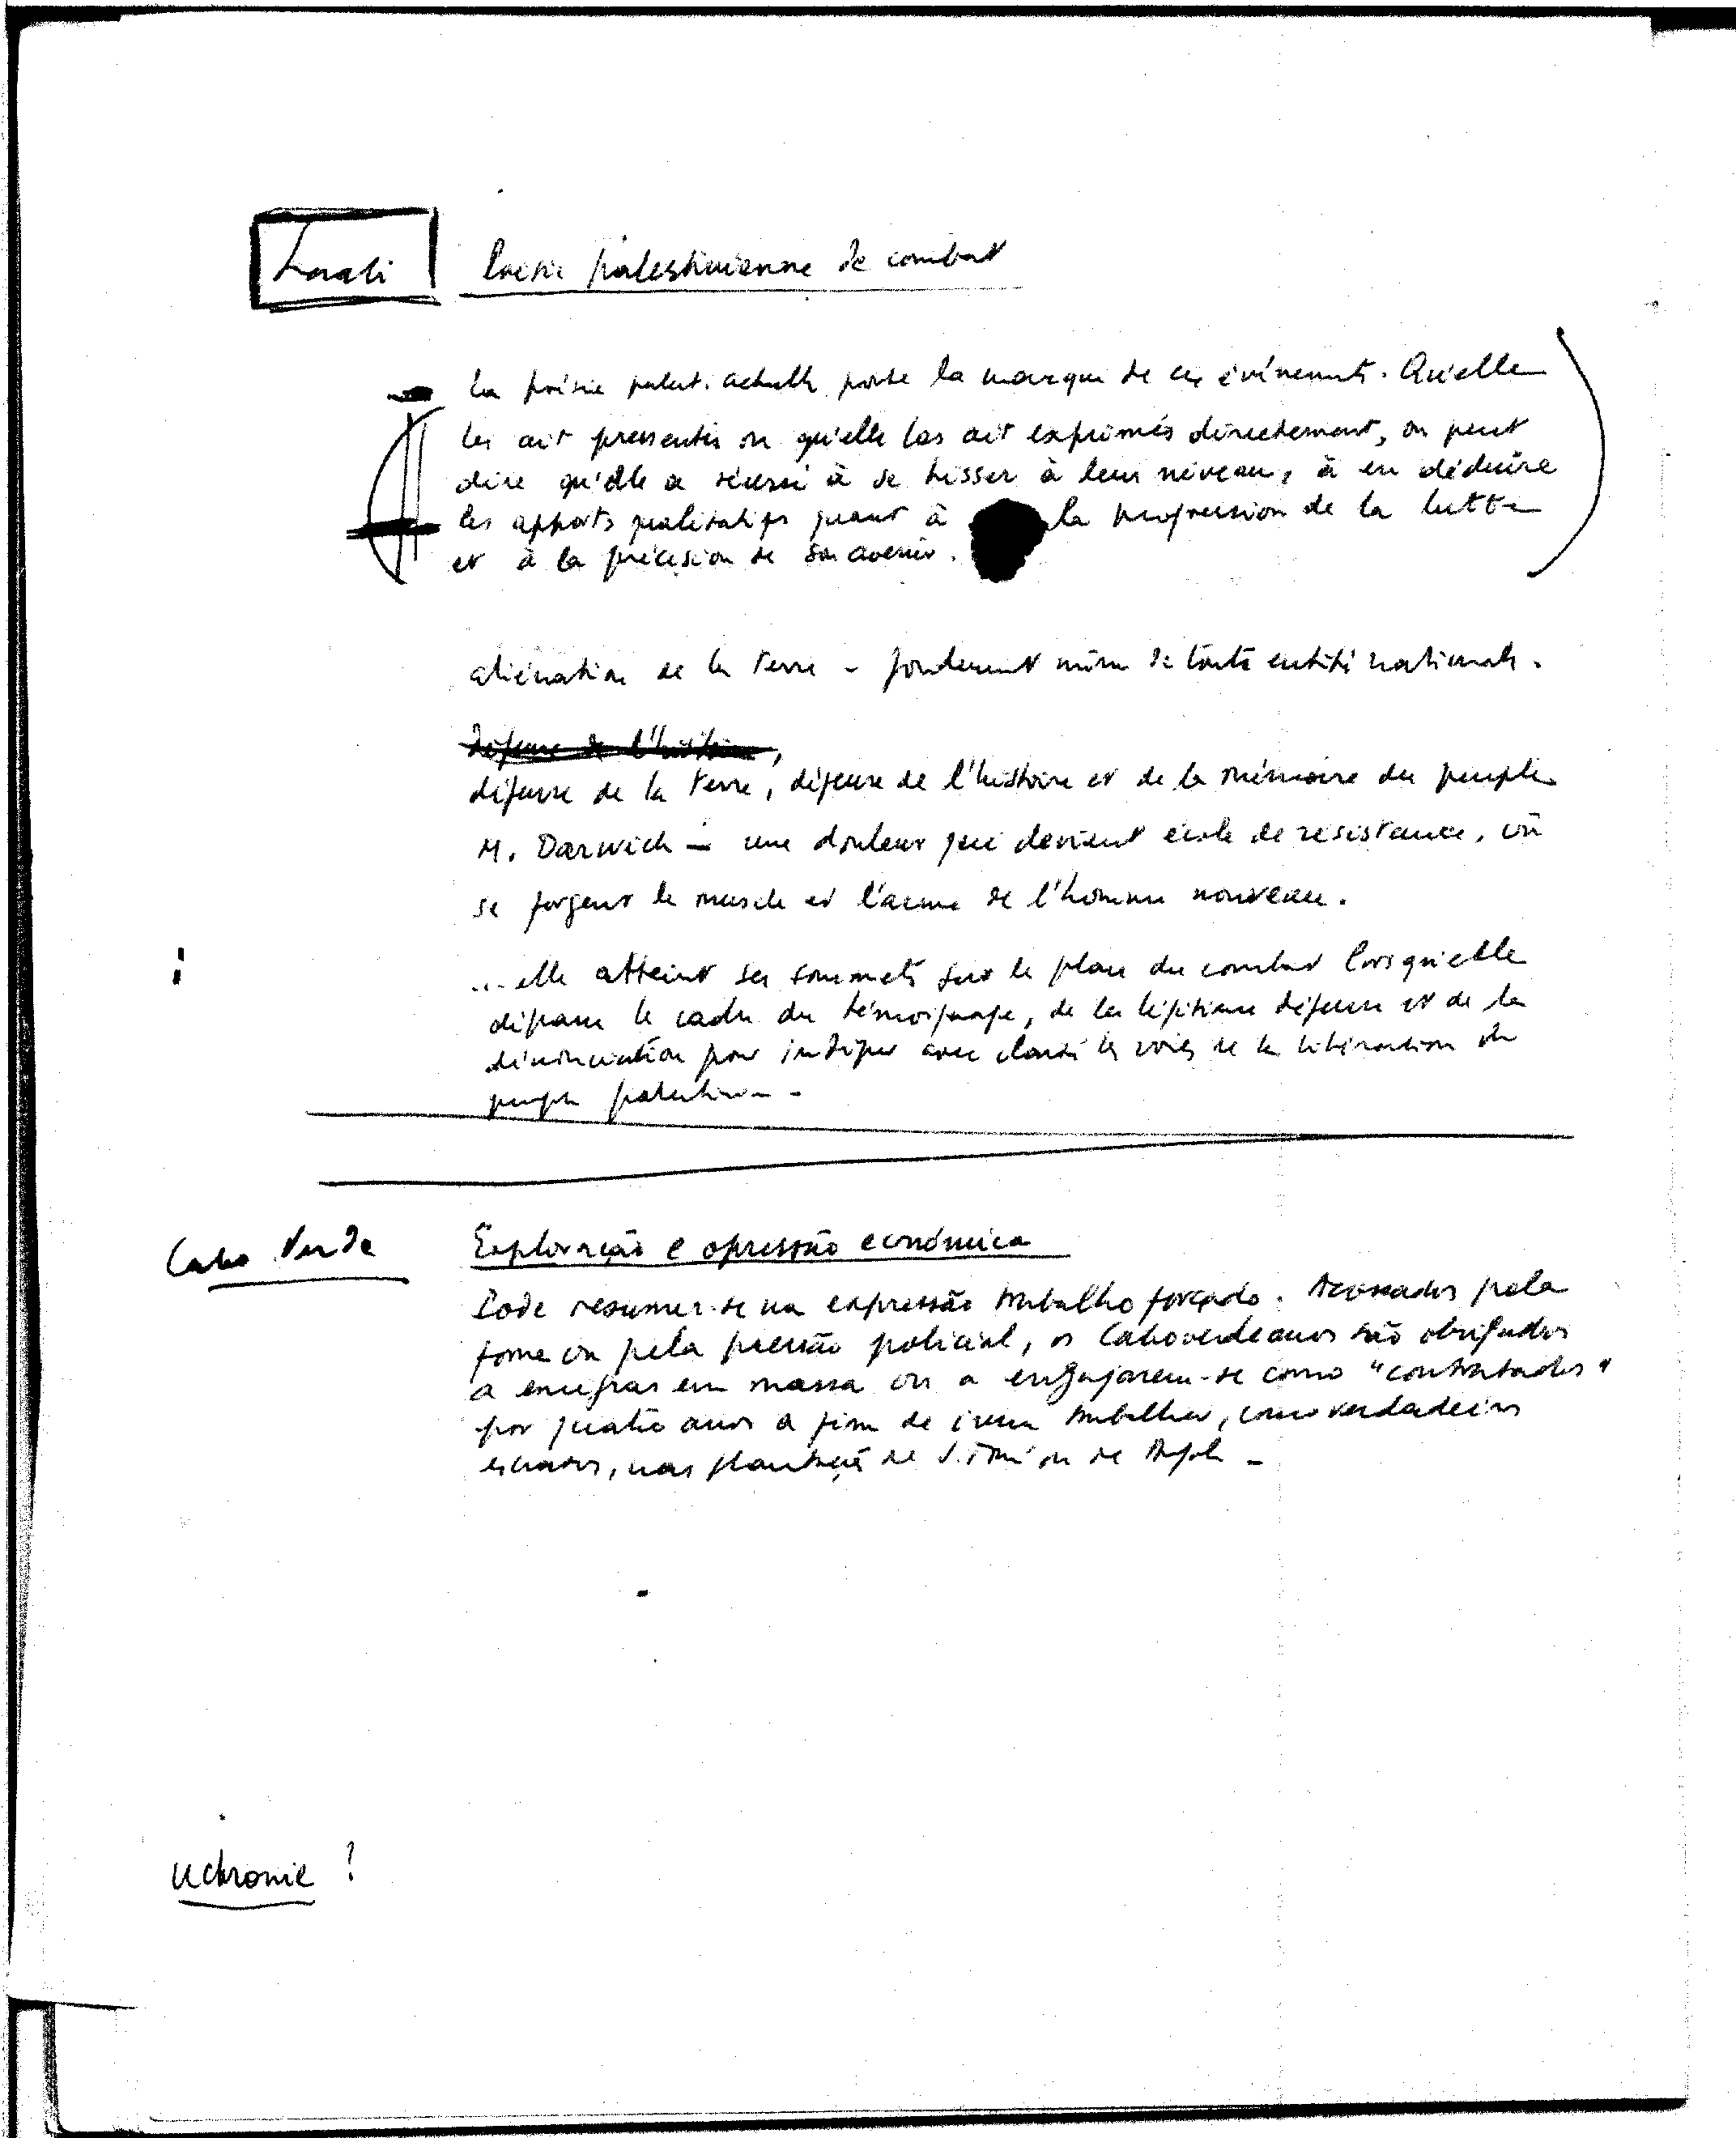 Laabi
Poésie palestinienne de combat
La poésie palest. actuelle porte la marque de ces événements. Qu'elle
les ait pressentis ou qu'elle les ait exprimés directement, on peut
dire qu'elle a réussi à se hisser à leur niveau, à en déduire
les apports qualitatifs quant à la progression de la lutte
et à la précision de son avenir.
aliénation de la terre - fondement même de toute entité nationale.
défense de l'histoire,
défense de la terre, défense de l'histoire et de la mémoire du peuple
M. Darwich - une douleur qui devient école de résistance, où
se forgent le muscle et l'arme de l'homme nouveau.
... elle atteint ses sommets sur le plan du combat lorsqu'elle
dépasse le cadre du témoignage, de la légitime défense et de la
dénonciation pour indiquer avec clarté les voies de la libération du
peuple palestinien -
Cabo Verde
Exploração e opressão económica
Pode resumir-se na expressão trabalho forçado. Acossados pela
fome ou pela pressão policial, os Caboverdeanos são obrigados
a emigrar em massa ou a engajarem-se como "contratados"
por quatro anos a fim de irem trabalhar, como verdadeiros
escravos, nas plantações de S. Tomé ou de Angola -
uchronie ?